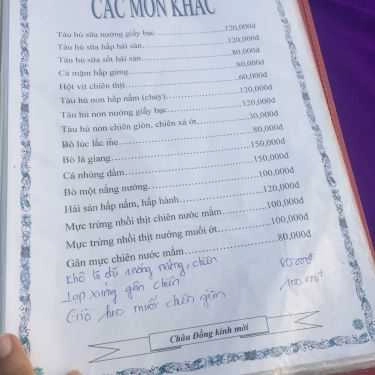 CÁC MÓN KHÁC
Tàu hủ sữa nướng giấy bạc............120,000đ
Tàu hủ sữa hấp hải sản............120,000đ
Tàu hủ sữa sốt hải sản............80,000đ
Cá mặm hấp gừng............80,000đ
Hột vịt chiên thịt............60,000đ
Tàu hủ non hấp nấm (chay)............120,000đ
Tàu hủ non nướng giấy bạc............120,000đ
Tàu hủ non chiên giòn, chiên xả ớt............30,000đ
Bò lúc lắc............80,000đ
Bò lá giang............150,000đ
Cá nhúng dấm............150,000đ
Bò một nắng nướng............100,000đ
Hải sản hấp nấm, hấp hành............120,000đ
Mực trứng nhồi thịt chiên nước mắm............100,000đ
Mực trứng nhồi thịt nướng muối ớt............100,000đ
Gân mực chiên nước mắm............80,000đ
nướng, chiên
chiên 80.000đ
Giò heo muối chiên giòn 100.000đ
Châu Đông kính mời